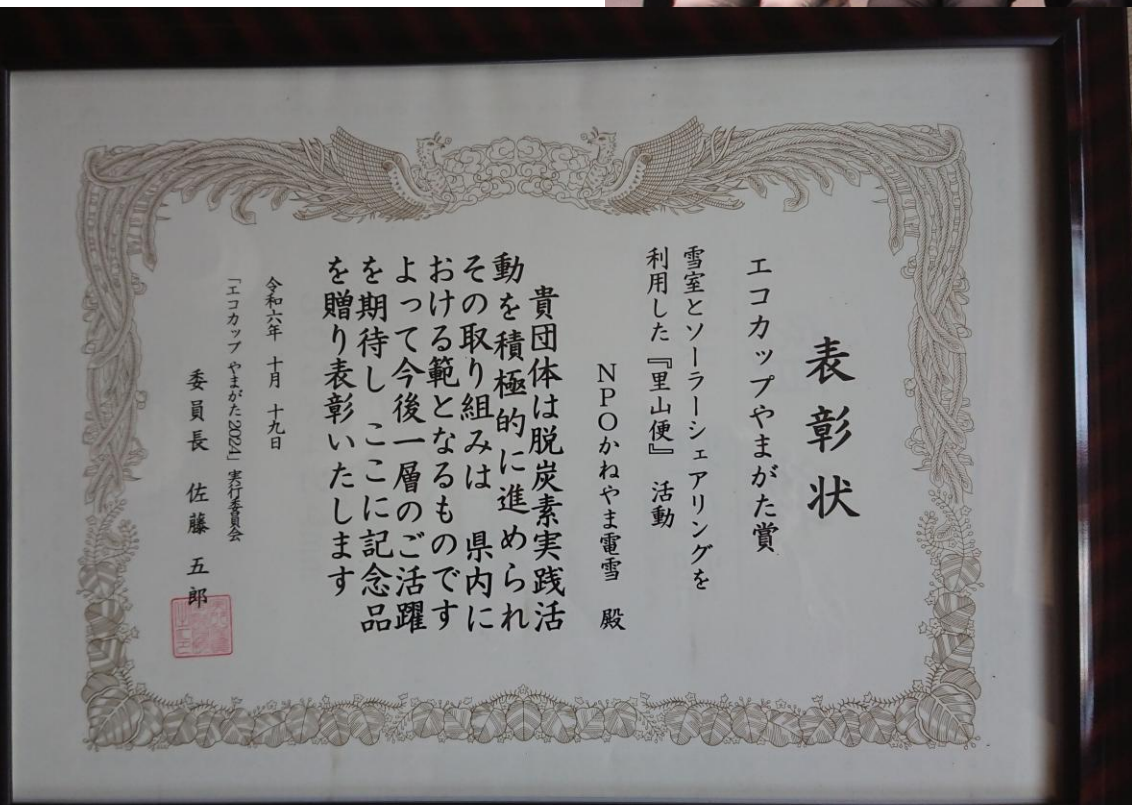 表彰状
エコカップやまがた賞
雪室とソーラーシェアリングを
利用した『里山便』 活動
NPOかねやま電雪 殿
貴団体は脱炭素実践活
動を積極的に進められ
その取り組みは 県内に
おける範となるものです
よって今後一層のご活躍
を期待し ここに記念品
を贈り表彰いたします
令和六年 十月 十九日
「エコカップ やまがた2024」 実行委員会
委員長 佐藤 五郎